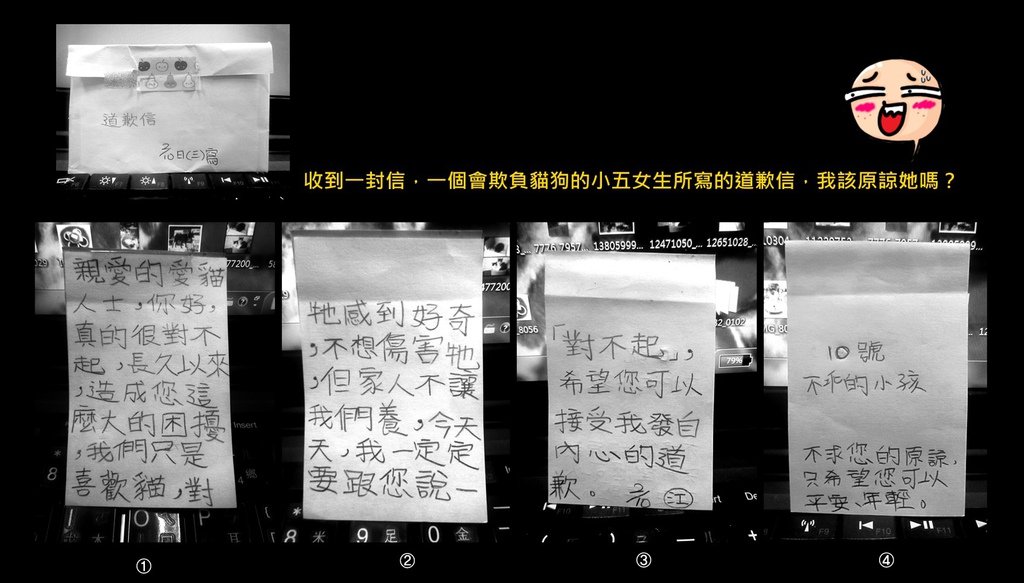 道歉信
日(三)寫
收到一封信，一個會欺負貓狗的小五女生所寫的道歉信，我該原諒她嗎？
親愛的愛貓
人士，你好，
真的很對不
起，長久以來
，造成您這
麼大的困擾
，我們只是
喜歡貓，對
①
牠感到好奇
，不想傷害牠
，但家人不讓
我們養，今天
天，我一定定
要跟您說一
②
「對不起」，
希望您可以
接受我發自
內心的道
歉。 江
③
10號
不乖的小孩
不求您的原諒，
只希望您可以
平安、年輕。
④
77200_...
477200_...
_8056
7776 7957... 13805999... 12471050_... 12651028_...
32_0102
79%
Insert
8 米 9 足 0 金
F9 F10 F11